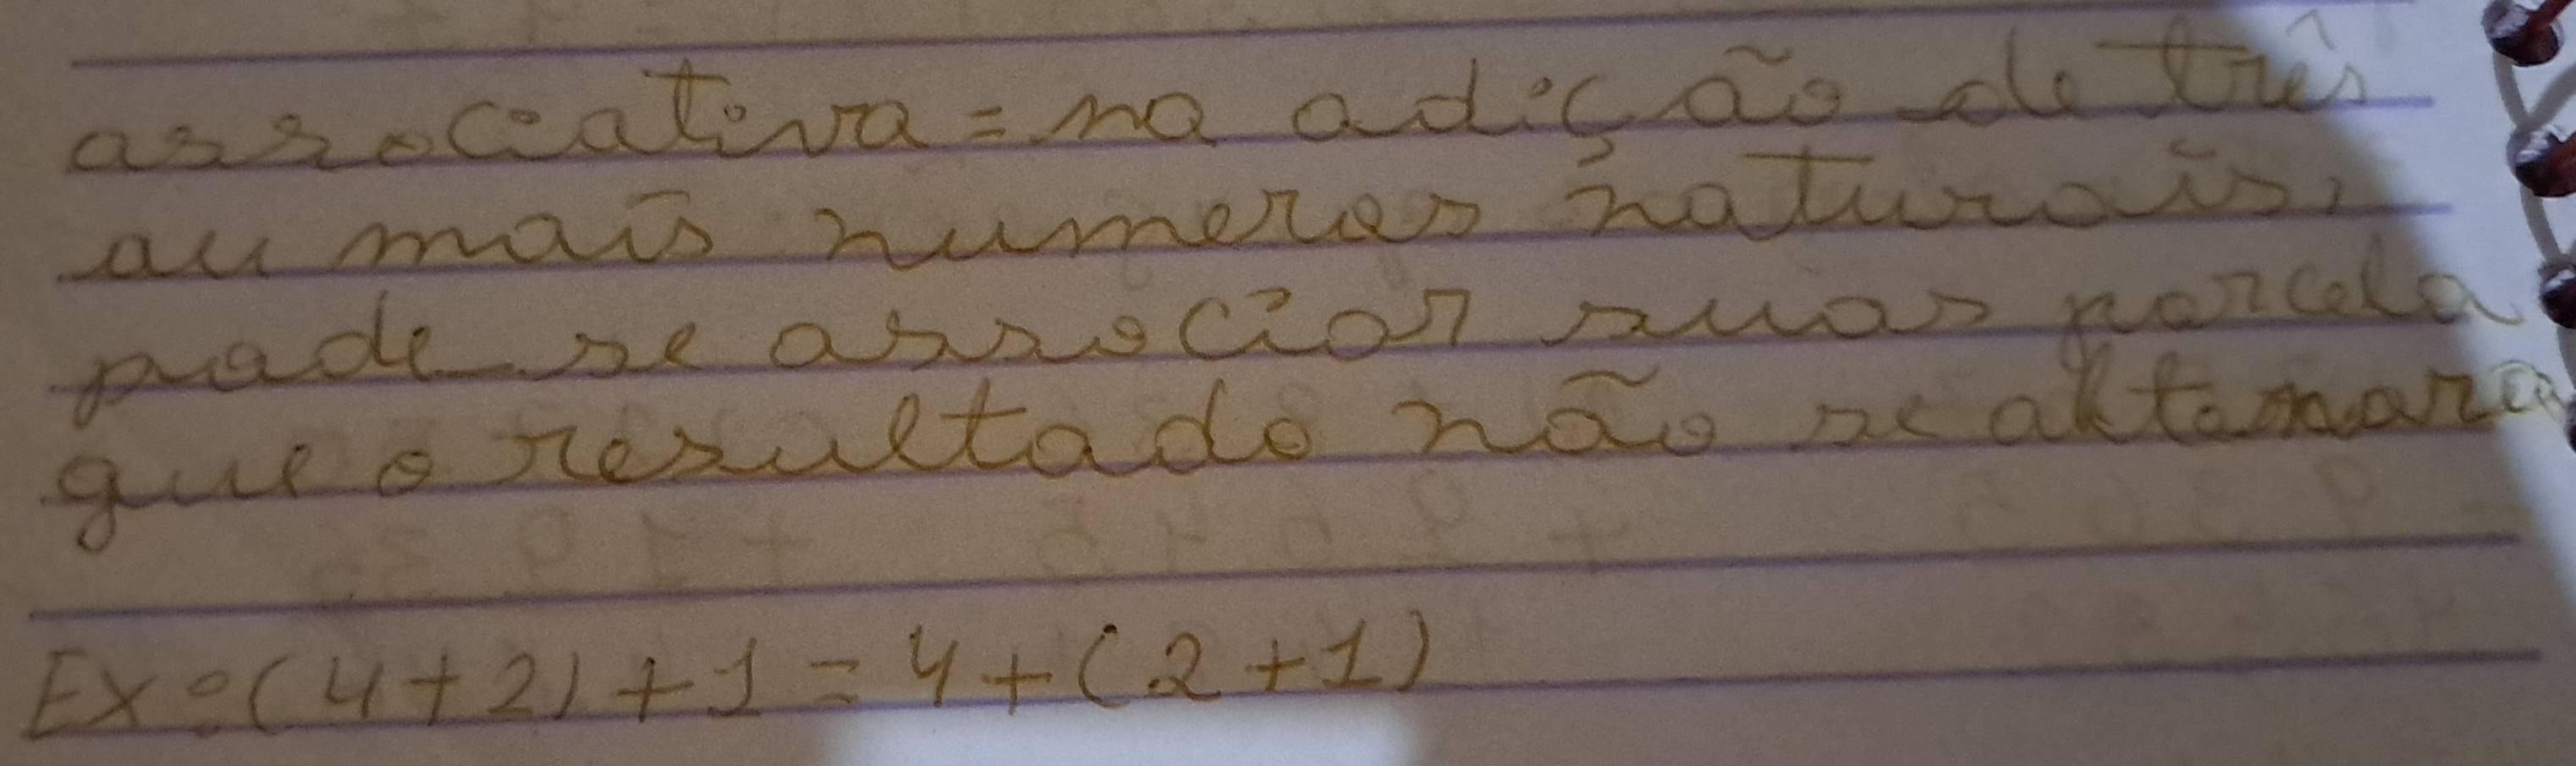 associativa = na adição de três
ou mais numeros naturais,
pode se associar suas parcela
que o resultado não se
Ex: (4+2)+1 = 4+(2+1)